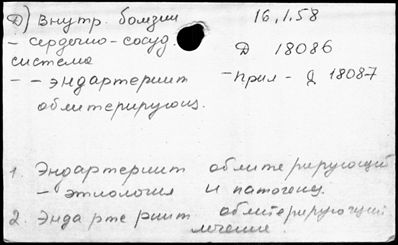 Д) Внутр. болезни 16.1.58
- сердечно-сосуд. Д 18086
система
- - эндартериит - Прил - Д 18087
облитерирующ.
1. Эндартериит облитерирующий
- этиология и патогенез.
2. Эндартериит облитерирующий
лечение.